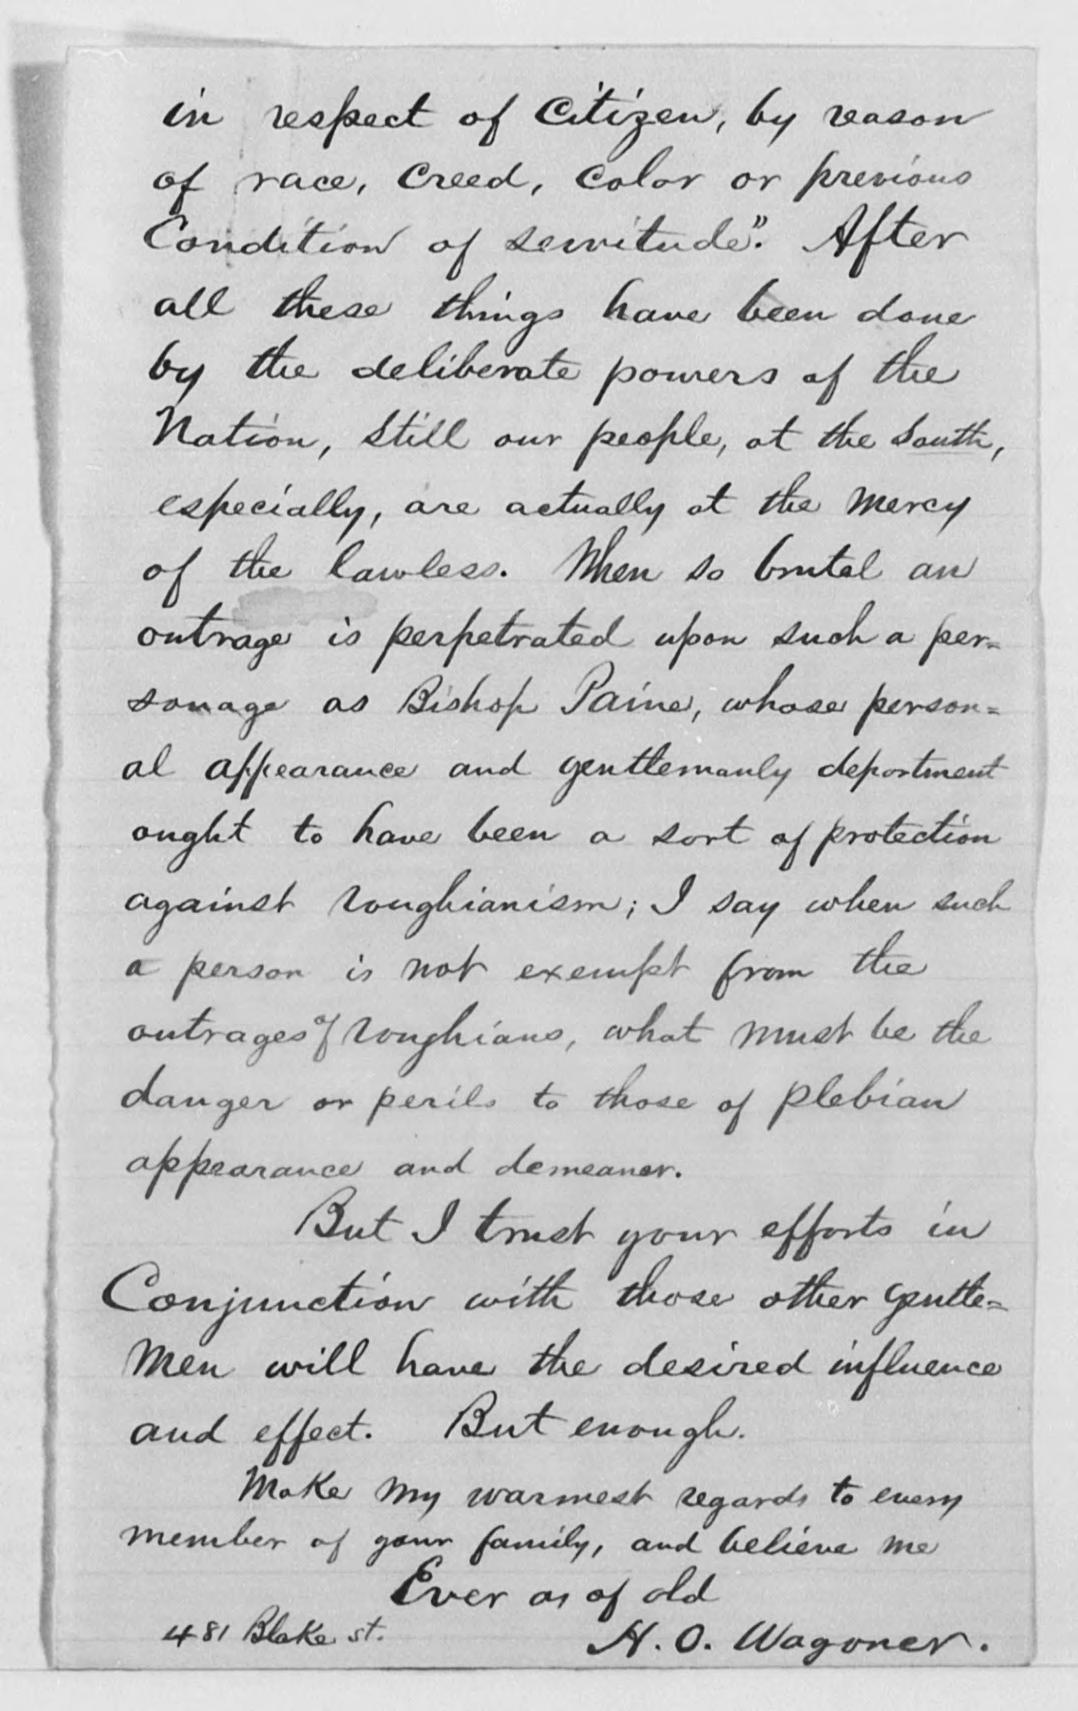 in respect of Citizen, by reason
of race, Creed, Color or previous
Condition of servitude". After
all these things have been done
by the deliberate powers of the
Nation, Still our people, at the South,
especially, are actually at the mercy
of the lawless. When so brutal an
outrage is perpetrated upon such a per=
sonage as Bishop Paine, whose person=
al appearance and gentlemanly deportment
ought to have been a sort of protection
against roughianism; I say when such
a person is not exempt from the
outrages of roughians, what must be the
danger or perils to those of plebian
appearance and demeaner.
But I trust your efforts in
Conjunction with those other gentle=
men will have the desired influence
and effect. But enough.
Make my warmest regards to every
member of your family, and believe me
Ever as of old
481 Blake st. H. O. Wagoner.